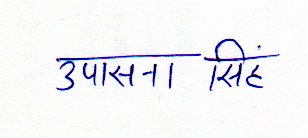 उपासना सिंह